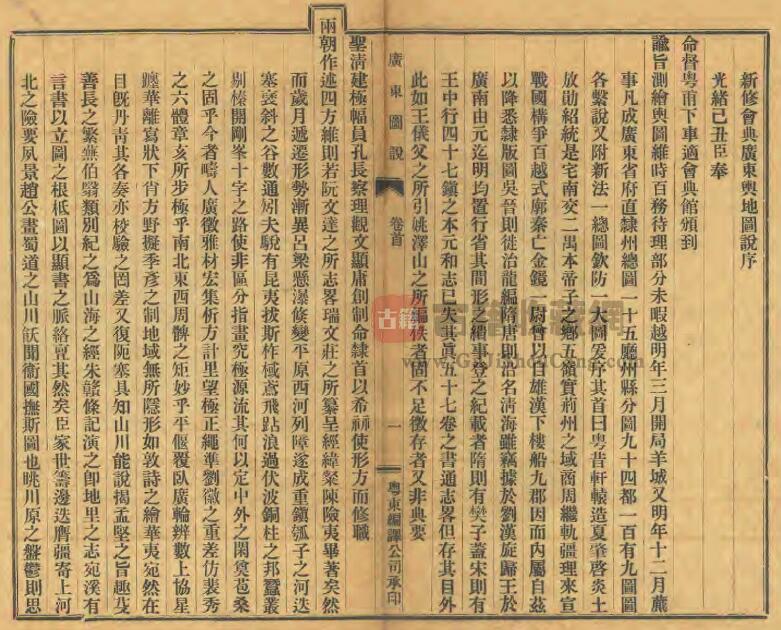 新修會典廣東輿地圖說序
光緒己丑臣奉
命督粵甫下車適會典館頒到
諭旨測繪輿圖維時百務待理部分未暇越明年三月開局羊城又明年十二月蕆
事凡成廣東省府直隸州總圖一十五廳州縣分圖九十四都一百有九圖圖
各繫說又附新法一總圖欽防 大圖爰序其首曰粵昔軒轅造夏肇啓炎土
放勛紹統是宅南交二禺本帝子之鄉五嶺實荊州之域商周繼軌疆理來宣
戰國構爭百越式廓秦亡金鏡 尉曾以自雄漢下樓船九郡因而內屬自茲
以降悉隸版圖吳晉則徙治龍編隋唐則治名清海雖竊據於劉漢旋歸王於
廣南由元迄明均置行省其間形之繪事登之紀載者隋則有樊子蓋宋則有
王中行四十七鎮之本元和志已失其眞五十七卷之書通志畧但存其目外
此如王儀父之所引姚澤山之所編佚者固不足徵存者又非典要
廣東圖說
卷首
一
粵東編譯公司承印
聖清建極幅員孔長察理觀文顯庸創制命隸首以希裨使形方而修職
兩朝作述四方維則若阮文達之所志畧瑞文莊之所纂呈經緯粲陳險夷畢著矣然
而歲月遞遷形勢漸異呂梁懸瀑倐變平原西河列障遂成重鎭瓠子之河迭
塞褒斜之谷數通矧夫駾有昆夷拔斯柞棫鳶飛跕浪過伏波銅柱之邦蠶叢
剔榛開剛峯十字之路使非區分指畫究極源流其何以定中外之閑奠苞桑
之固乎今者疇人廣徵雅材宏集析方計里望極正繩準劉徽之重差仿裴秀
之六體章亥所步極乎南北東西周髀之矩妙乎平偃覆臥廣輪辨數上協星
躔華離寫狀下肖方野擬季彥之制地域無所隱形如敦詩之繪華夷宛然在
目旣丹靑其各奏亦校驗之罔差又復阨塞具知山川能說揭孟堅之旨趣芟
善長之繁蕪伯翳類別紀之爲山海之經朱贛條記演之卽地里之志宛溪有
言書以立圖之根柢圖以顯書之脈絡覽其然矣臣家世籌邊迭膺疆寄上河
北之險要夙景趙公畫蜀道之山川飫聞衞國撫斯圖也眺川原之盤鬱則思